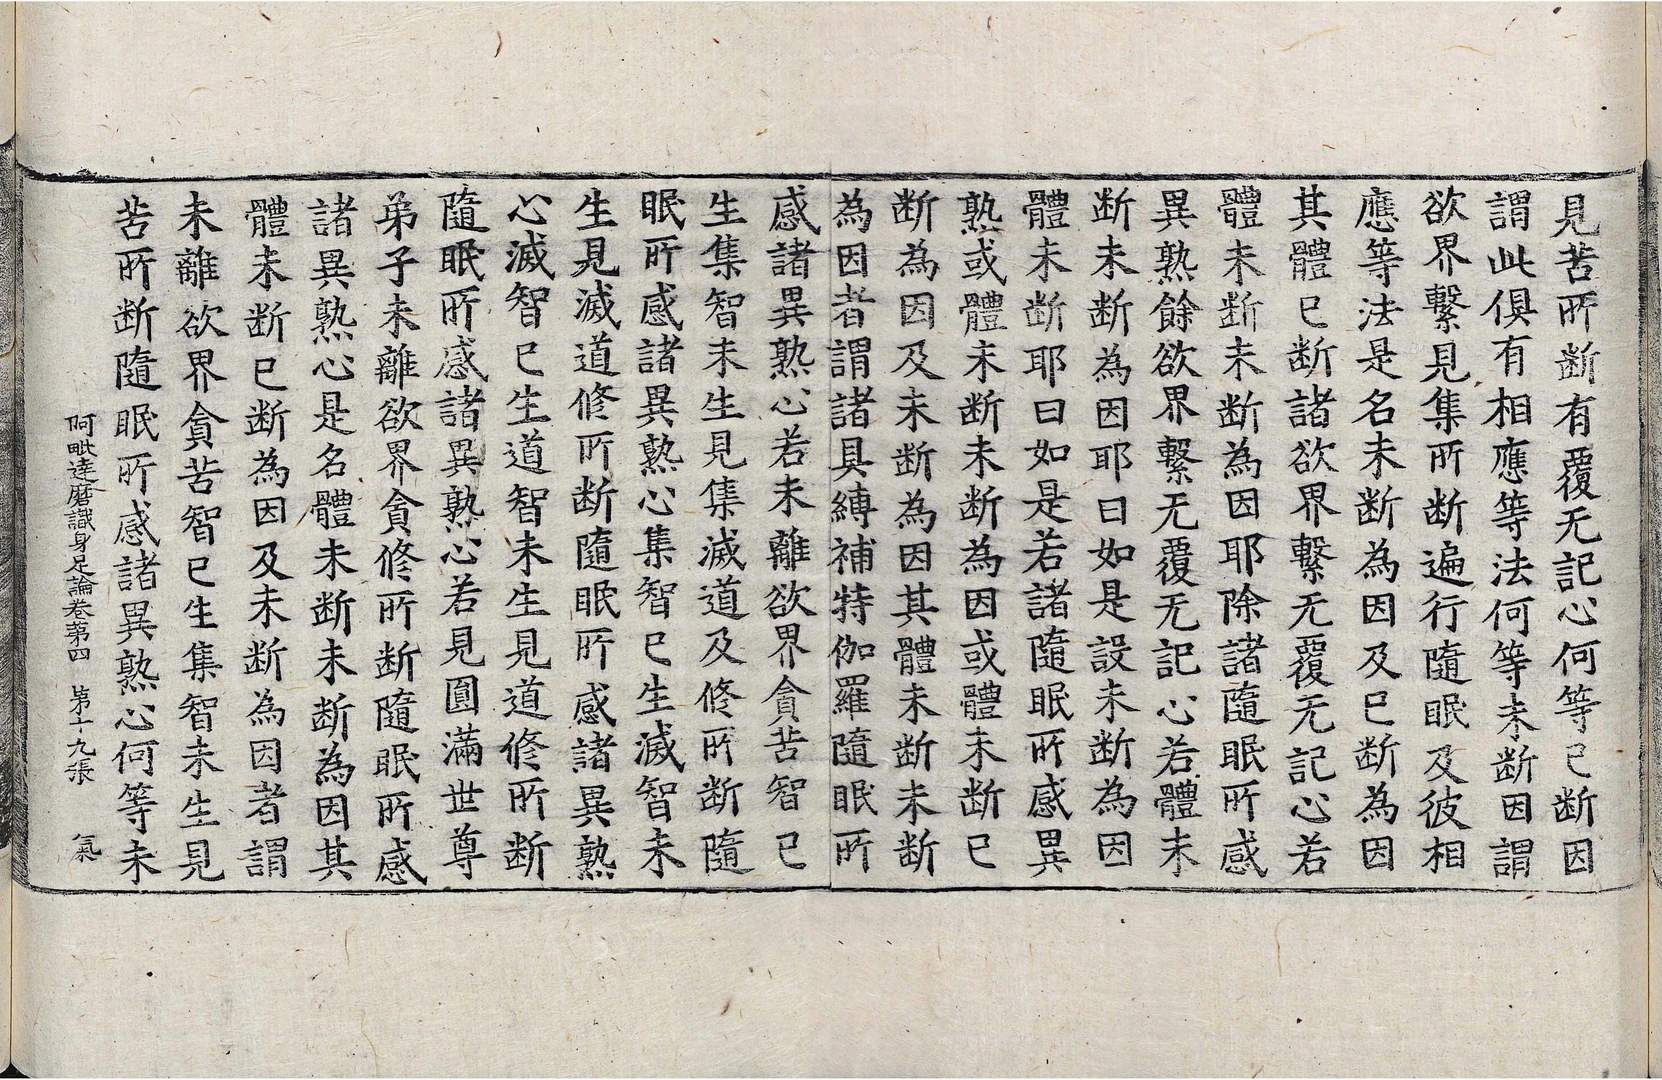 見苦所断有覆无記心何等已断因
謂此俱有相應等法何等未断因謂
欲界繫見集所断遍行隨眠及彼相
應等法是名未断為因及已断為因
其體已断諸欲界繫无覆无記心若
體未断未断為因耶除諸隨眠所感
異熟餘欲界繫无覆无記心若體未
断未断為因耶曰如是設未断為因
體未断耶曰如是若諸隨眠所感異
熟或體未断未断為因或體未断已
断為因及未断為因其體未断未断
為因者謂諸具縛補特伽羅隨眠所
感諸異熟心若未離欲界貪苦智已
生集智未生見集滅道及修所断隨
眠所感諸異熟心集智已生滅智未
生見滅道修所断隨眠所感諸異熟
心滅智已生道智未生見道修所断
隨眠所感諸異熟心若見圓滿世尊
弟子未離欲界貪修所断隨眠所感
諸異熟心是名體未断未断為因其
體未断已断為因及未断為因者謂
未離欲界貪苦智已生集智未生見
苦所断隨眠所感諸異熟心何等未
阿毗達磨識身足論卷第四 第十九張 氣